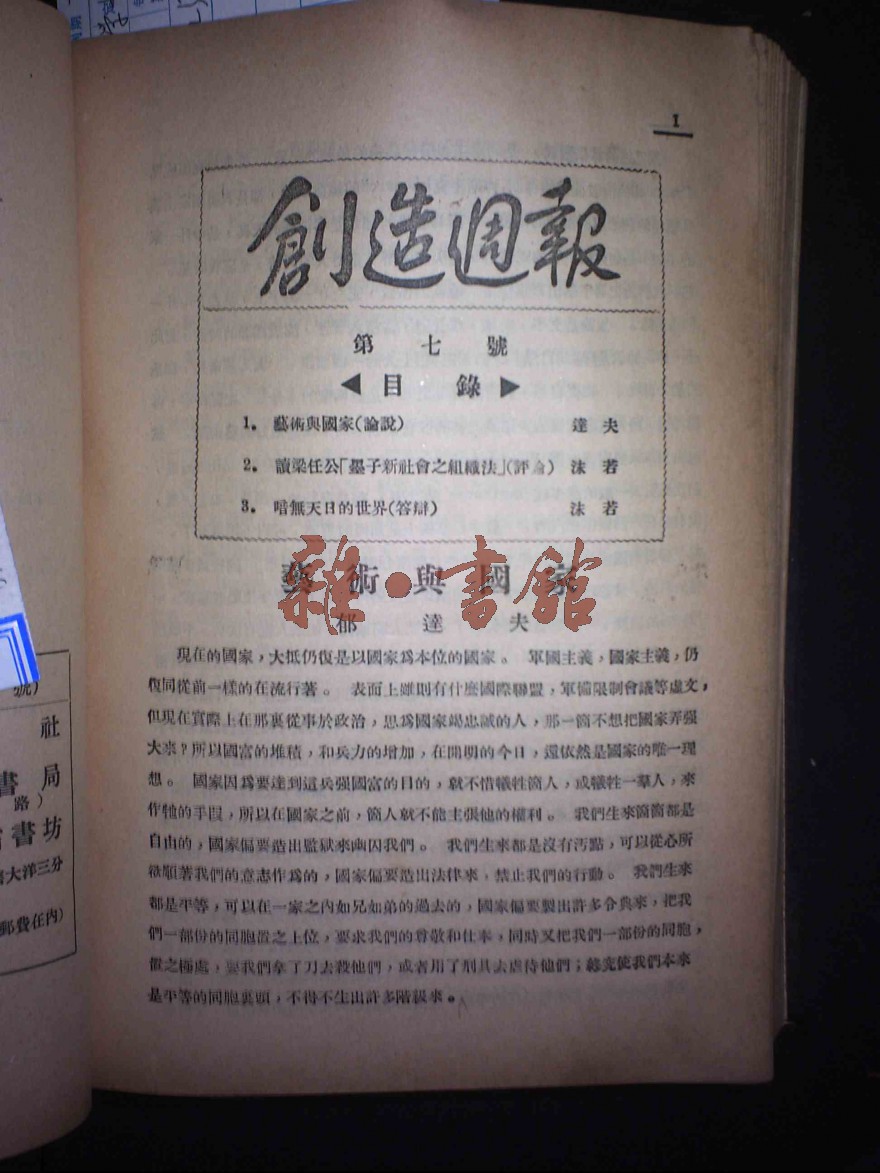 I
創造週報
第七號
◀目錄▶
1. 藝術與國家(論說) 達夫
2. 讀梁任公「墨子新社會之組織法」(評論) 沫若
3. 暗無天日的世界(答辯) 沫若
藝術與國家
雜·書館
郁達夫
現在的國家,大抵仍復是以國家爲本位的國家。 軍國主義,國家主義,仍
復同從前一樣的在流行著。 表面上雖則有什麼國際聯盟,軍備限制會議等虛文,
但現在實際上在那裏從事於政治,思爲國家竭忠誠的人,那一箇不想把國家弄强
大來?所以國富的堆積,和兵力的增加,在開明的今日,還依然是國家的唯一理
想。 國家因爲要達到這兵强國富的目的,就不惜犧牲箇人,或犧牲一羣人,來
作牠的手段,所以在國家之前,箇人就不能主張他的權利。 我們生來箇箇都是
自由的,國家偏要造出監獄來幽囚我們。 我們生來都是沒有汚點,可以從心所
欲順著我們的意志作爲的,國家偏要造出法律來,禁止我們的行動。 我們生來
都是平等,可以在一家之內如兄如弟的過去的,國家偏要製出許多令典來,把我
們一部份的同胞置之上位,要求我們的尊敬和仕奉,同時又把我們一部份的同胞,
置之極處,要我們拿了刀去殺他們,或者用了刑具去虐待他們;終究使我們本來
是平等的同胞裏頭,不得不生出許多階級來。
號)
社
書局
路)
書坊
大洋三分
郵費在內)